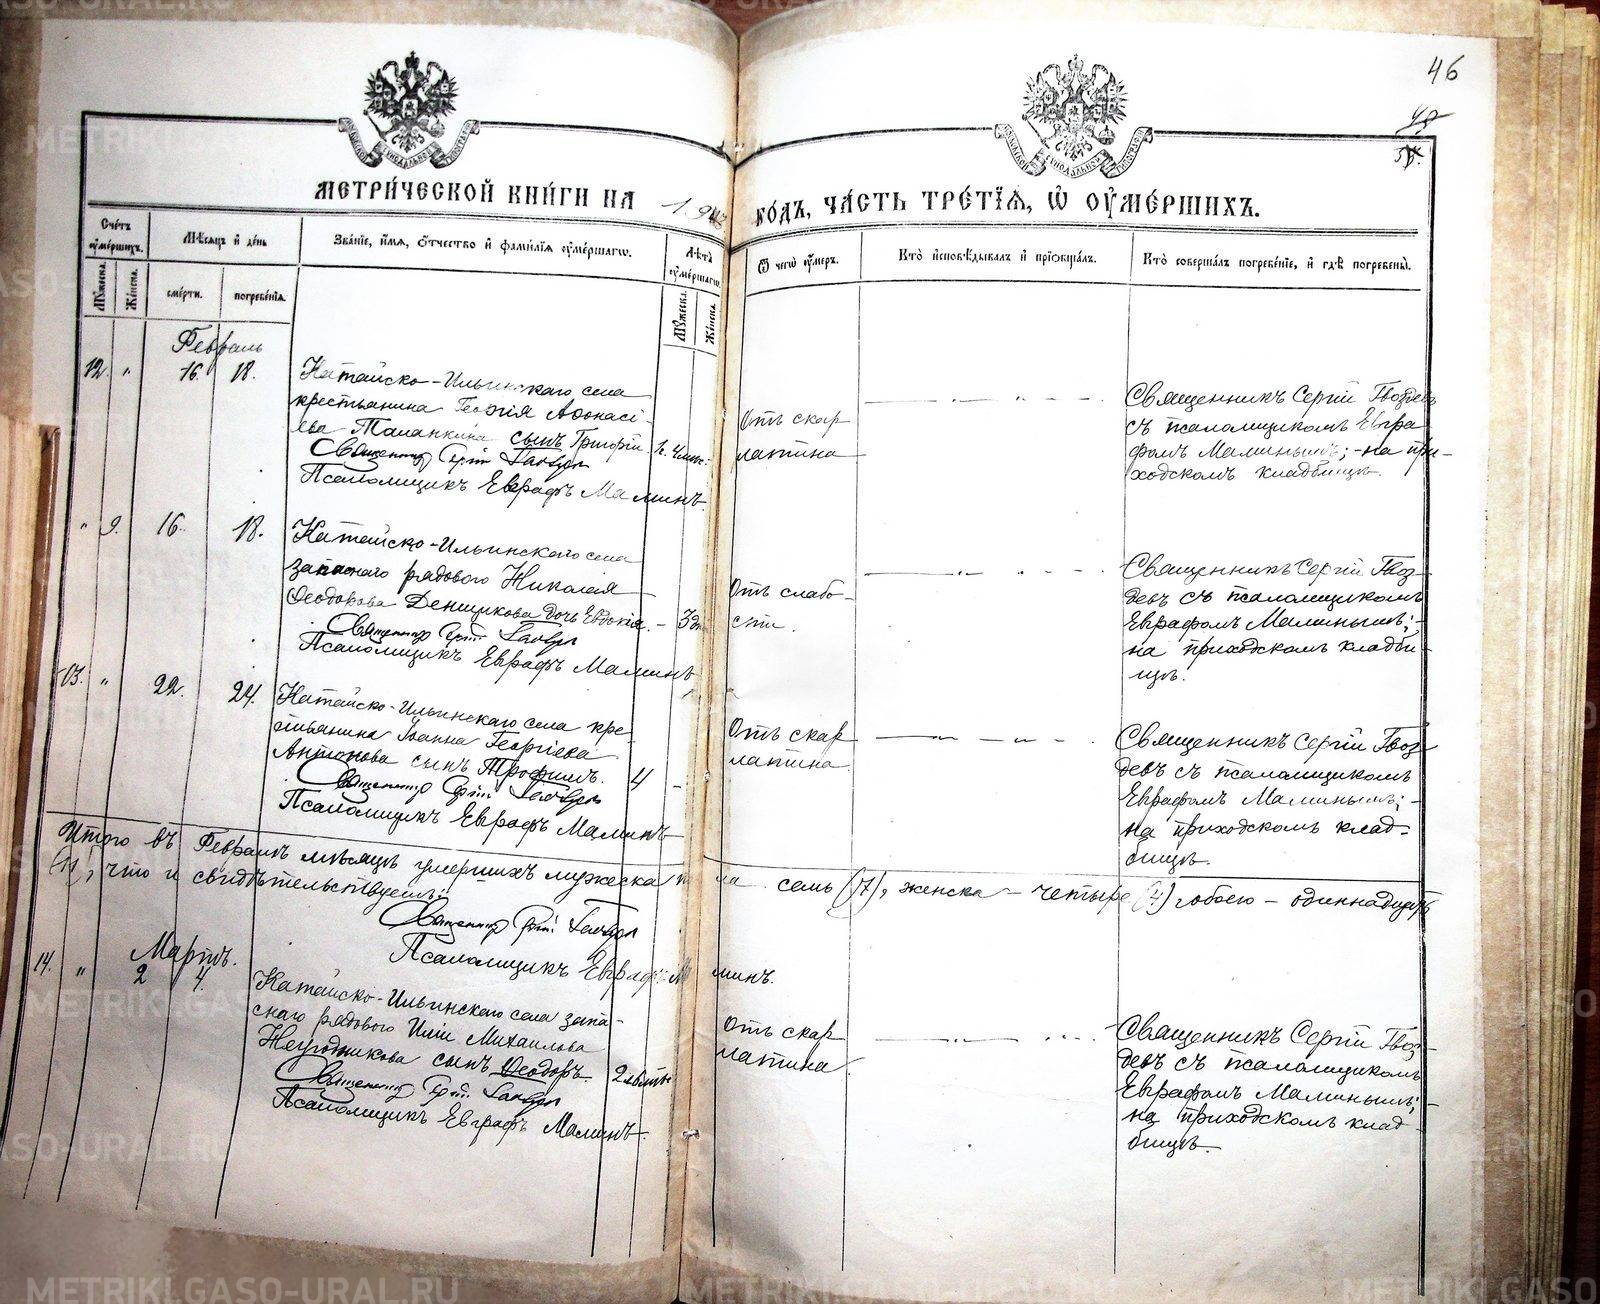 46
МЕТРИ́ЧЕСКОЙ КНИ́ГИ НА
ГО́ДЪ, ЧА́СТЬ ТРЕ́ТІѦ, Ѿ ОУ҆МЕ́РШИХЪ.
Сче́тъ оу҆ме́ршихъ.
Мꙋ́жеска.
Же́нска.
Мѣ́сѧцъ и҆ де́нь
сме́рти.
погребе́нїѧ.
Зва́нїе, и҆́мѧ, ѻ҆́тчество и҆ фамѝлїѧ оу҆ме́ршагѡ.
Лѣ́та оу҆ме́ршагѡ.
Мꙋ́жеска.
Же́нска.
Ѿ чегѡ̀ оу҆́меръ.
Кто̀ и҆сповѣ́дывалъ и҆ прїѡбща́лъ.
Кто̀ соверша́лъ погребе́нїе, и҆ гдѣ̀ погребены̀.
Февраль
12. " 16. 18.
Катайско-Ильинскаго села
крестьянина Георгія Аѳонасі-
ева Таланкина сынъ Григорій
Священникъ Сергій Гвоздевъ
Псаломщикъ Евграфъ Маминъ.
Отъ скар
латина
Священникъ Сергій Гвоздевъ
съ псаломщикомъ Евгра
фомъ Маминымъ; - на при-
ходскомъ кладбищѣ.
" 9. 16. 18.
Катайско-Ильинскаго села
запаснаго рядового Николая
Ѳеодорова Денщикова дочь Евдокія. - 3 дн
Священникъ Сергій Гвоздевъ
Псаломщикъ Евграфъ Маминъ
Отъ слабо-
сти.
Священникъ Сергій Гвоз-
девъ съ псаломщикомъ
Евграфомъ Маминымъ; -
на приходскомъ кладби-
щѣ.
13. " 22. 24.
Катайско-Ильинскаго села кре-
стьянина Іоанна Георгіева
Антонова сынъ Трофимъ. 4 -
Священникъ Сергій Гвоздевъ
Псаломщикъ Евграфъ Маминъ
Отъ скар
латина.
Священникъ Сергій Гвоз-
девъ съ псаломщикомъ
Евграфомъ Маминымъ; -
на приходскомъ клад-
бищѣ.
Итого въ Февралѣ мѣсяцѣ умершихъ мужеска пола семь (7), женска - четыре (4) обоего - одиннадцать
(11), что и свидѣтельствуемъ:
Священникъ Сергій Гвоздевъ
Псаломщикъ Евграфъ Маминъ.
Мартъ.
14. " 2 4.
Катайско-Ильинскаго села запа-
снаго рядового Иліи Михаилова
сынъ Ѳеодоръ. 2 лѣтъ
Священникъ Сергій Гвоздевъ
Псаломщикъ Евграфъ Маминъ.
Отъ скар
латина.
Священникъ Сергій Гвоз-
девъ съ псаломщикомъ
Евграфомъ Маминымъ; -
на приходскомъ клад-
бищѣ.
METRIKI.GASO-URAL.RU